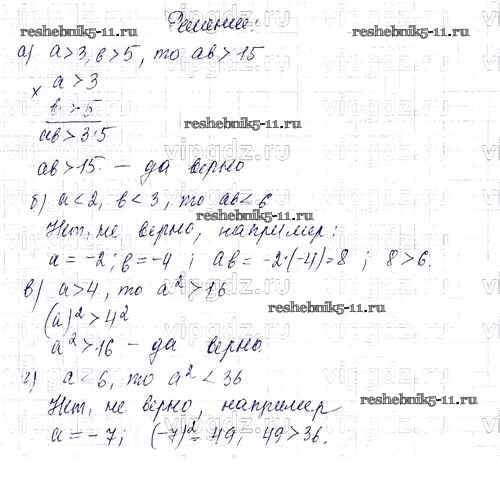 Решение:
reshebnik5-11.ru
а) a>3, в>5, то ав>15
× a>3
reshebnik5-11.ru
в>5
ав>3·5
reshebnik5-11.ru
ав>15. – да верно
б) a<2, в<3, то ав<6
reshebnik5-11.ru
Нет, не верно, например:
a = -2; в = -4 ; ав = -2·(-4)=8 ; 8>6.
в) a>4, то a²>16
reshebnik5-11.ru
(a)²>4²
a²>16 – да верно.
г) a<6, то a²<36
Нет, не верно, например
reshebnik5-11.ru
a=-7; (-7)²=49; 49>36.